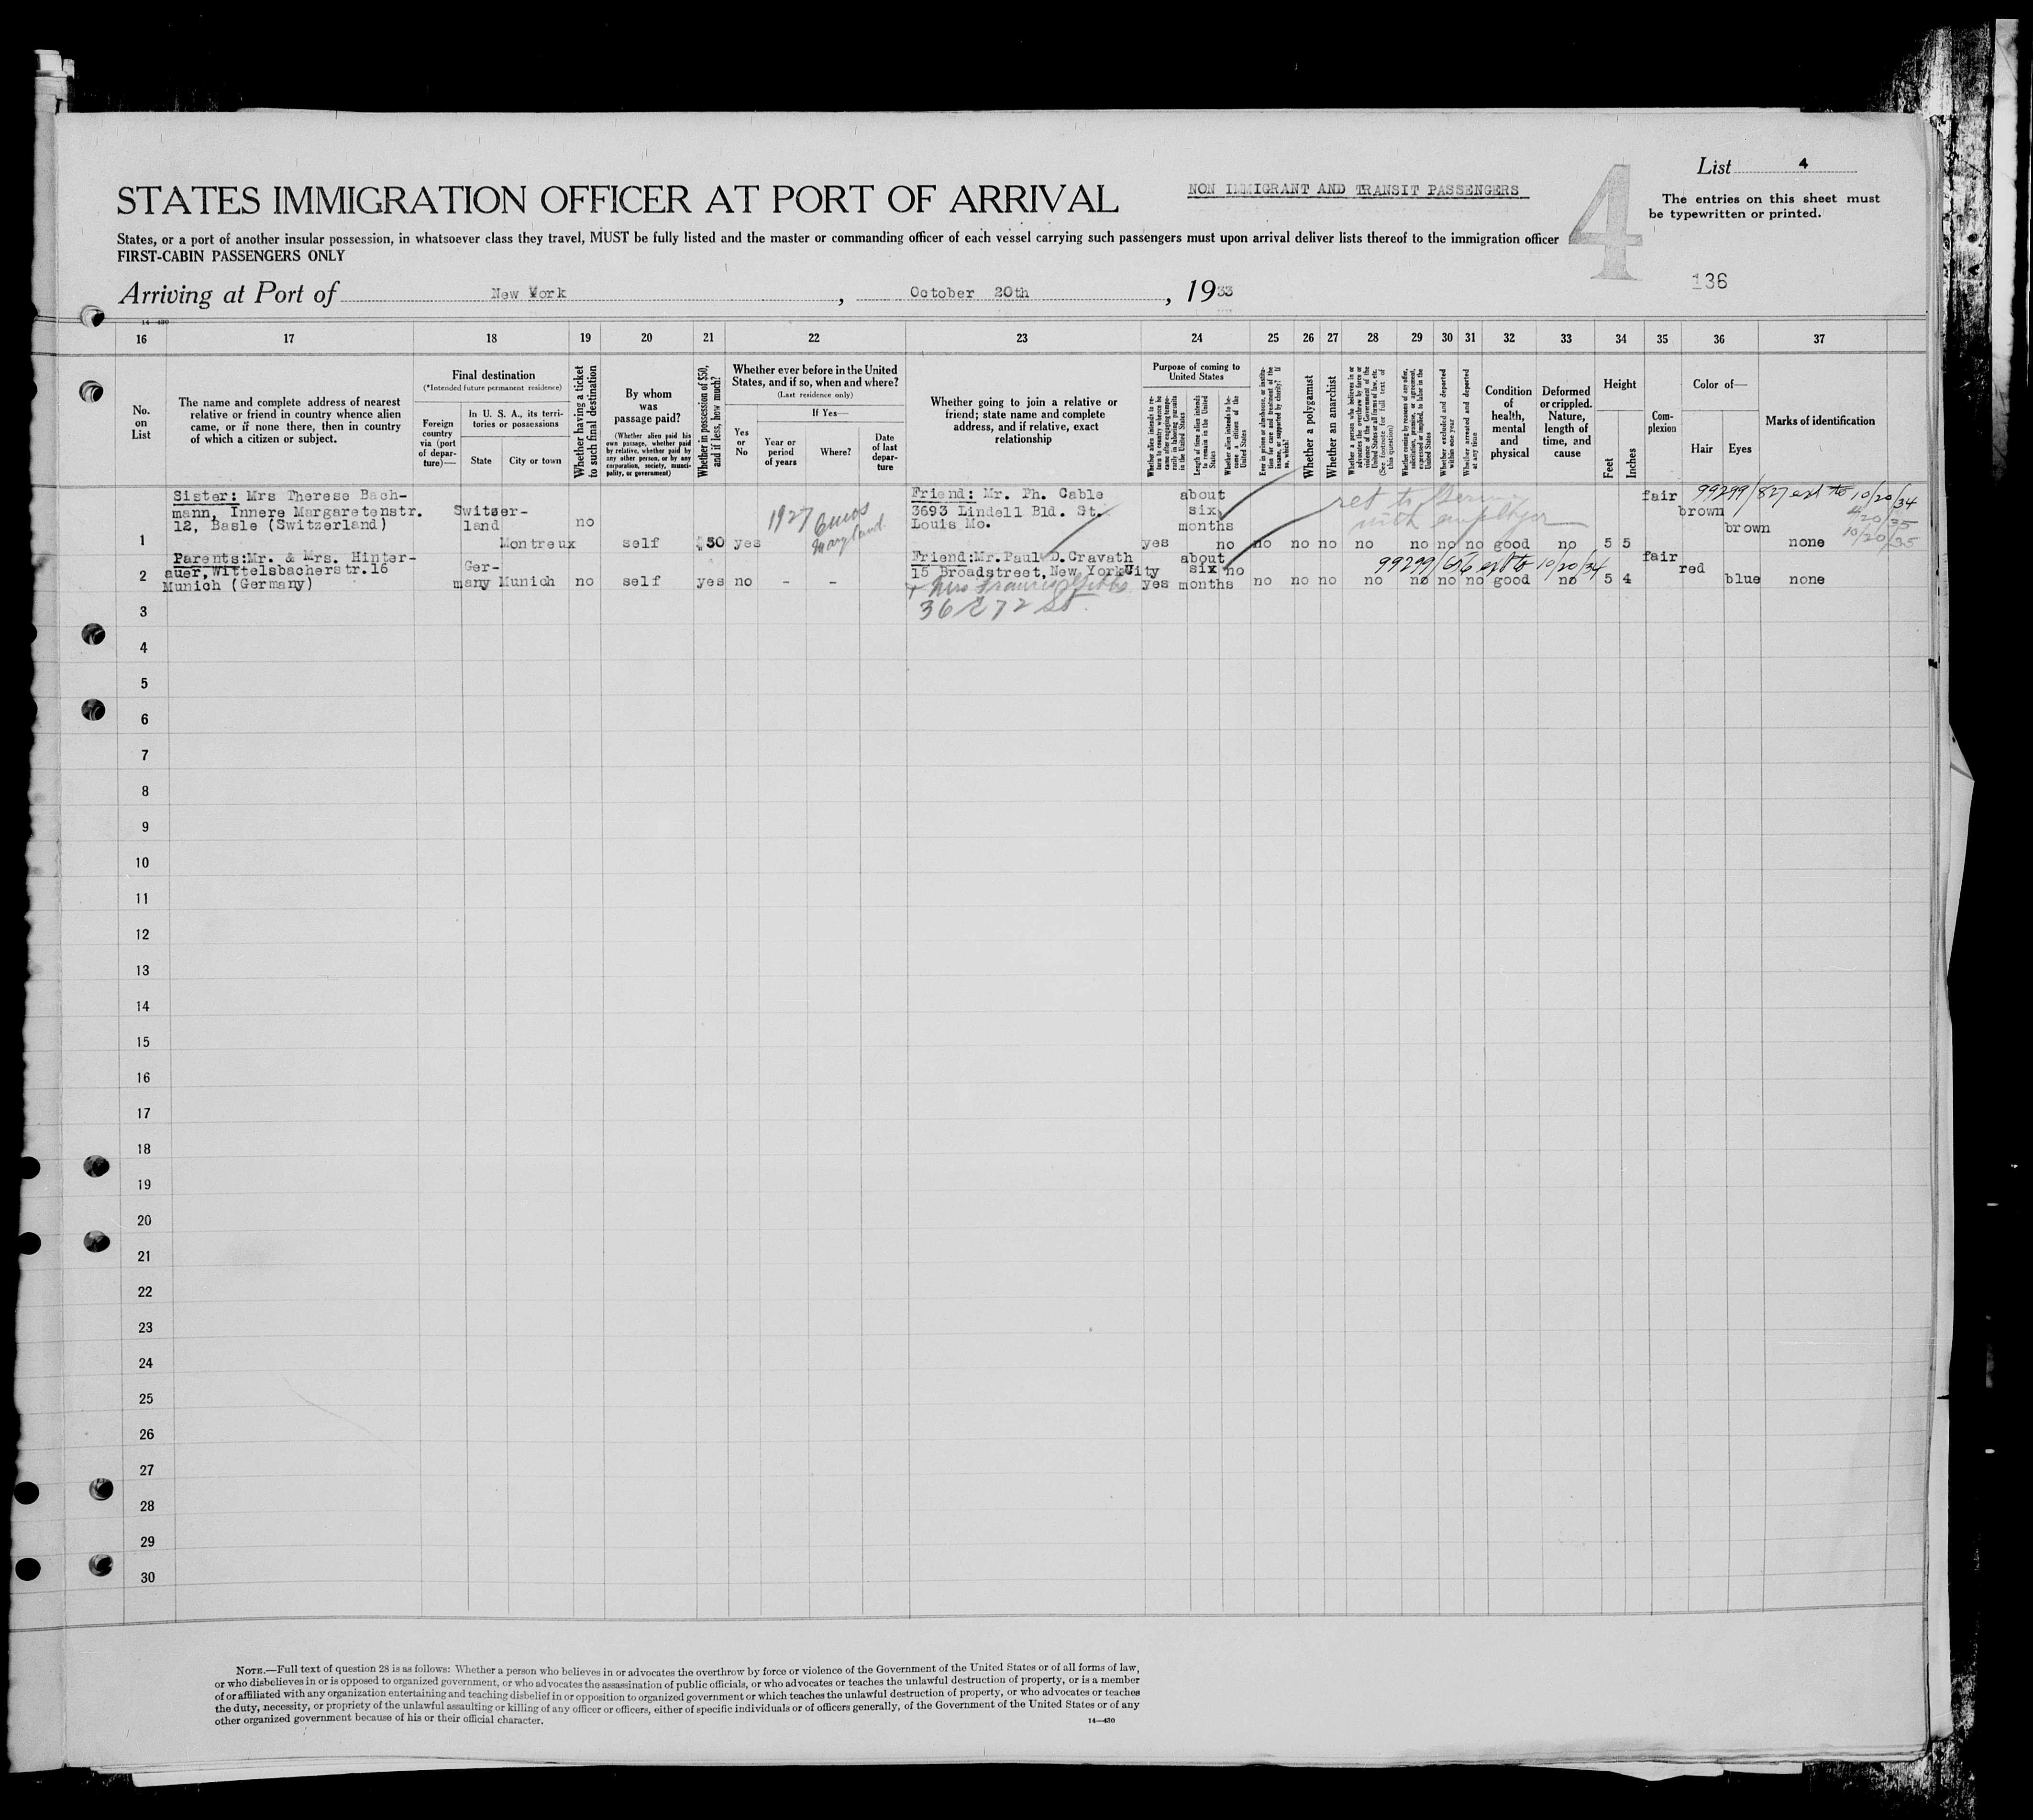 List 4
STATES IMMIGRATION OFFICER AT PORT OF ARRIVAL
NON IMMIGRANT AND TRANSIT PASSENGERS
4
The entries on this sheet must
be typewritten or printed.
States, or a port of another insular possession, in whatsoever class they travel, MUST be fully listed and the master or commanding officer of each vessel carrying such passengers must upon arrival deliver lists thereof to the immigration officer
FIRST-CABIN PASSENGERS ONLY
136
Arriving at Port of New York, October 20th, 1933
14—430
16 17 18 19 20 21 22 23 24 25 26 27 28 29 30 31 32 33 34 35 36 37
No.
on
List
The name and complete address of nearest
relative or friend in country whence alien
came, or if none there, then in country
of which a citizen or subject.
Final destination
(*Intended future permanent residence)
Foreign
country
via (port
of depar-
ture)—
In U. S. A., its terri-
tories or possessions
State
City or town
Whether having a ticket
to such final destination
By whom
was
passage paid?
(Whether alien paid his
own passage, whether paid
by relative, whether paid by
any other person, or by any
corporation, society, munici-
pality, or government)
Whether in possession of $50,
and if less, how much?
Whether ever before in the United
States, and if so, when and where?
(Last residence only)
Yes
or
No
If Yes—
Year or
period
of years
Where?
Date
of last
depar-
ture
Whether going to join a relative or
friend; state name and complete
address, and if relative, exact
relationship
Purpose of coming to
United States
Whether alien intends to re-
turn to country whence he
came after engaging tempo-
rarily in laboring pursuits
in the United States
Length of time alien intends
to remain in the United
States
Whether alien intends to be-
come a citizen of the
United States
Ever in prison or almshouse, or institu-
tion for care and treatment of the
insane, or supported by charity? If
so, which?
Whether a polygamist
Whether an anarchist
Whether a person who believes in or
advocates the overthrow by force or
violence of the Government of the
United States or all forms of law, etc.
(See footnote for full text of
this question)
Whether coming by reason of any offer,
solicitation, promise, or agreement,
expressed or implied, to labor in the
United States
Whether excluded and deported
within one year
Whether arrested and deported
at any time
Condition
of
health,
mental
and
physical
Deformed
or crippled.
Nature,
length of
time, and
cause
Height
Feet
Inches
Com-
plexion
Color of—
Hair
Eyes
Marks of identification
1
Sister: Mrs Therese Bach-
mann, Innere Margaretenstr.
12, Basle (Switzerland)
Switzer-
land
Montreux
no
self
$50
yes
1927
Maryland
Friend: Mr. Ph. Cable
3693 Lindell Bld. St.
Louis Mo.
yes
about
six
months
no
no no no no no no no good no 5 5
ret to
with employer
fair
brown
brown
none
99299/827 ext to 10/20/34
4/20/35
10/20/35
2
Parents:Mr. & Mrs. Hinter-
auer,Wittelsbacherstr.16
Munich (Germany)
Ger-
many
Munich
no
self
yes
no
-
-
Friend:Mr.Paul D.Cravath
15 Broadstreet,New York City
+ Mrs
36 E 72 St.
yes
about
six
months
no
no no no no no no no good no 5 4
99299/ ext to 10/20/34
fair
red
blue
none
3
4
5
6
7
8
9
10
11
12
13
14
15
16
17
18
19
20
21
22
23
24
25
26
27
28
29
30
NOTE.—Full text of question 28 is as follows: Whether a person who believes in or advocates the overthrow by force or violence of the Government of the United States or of all forms of law,
or who disbelieves in or is opposed to organized government, or who advocates the assassination of public officials, or who advocates or teaches the unlawful destruction of property, or is a member
of or affiliated with any organization entertaining and teaching disbelief in or opposition to organized government or which teaches the unlawful destruction of property, or who advocates or teaches
the duty, necessity, or propriety of the unlawful assaulting or killing of any officer or officers, either of specific individuals or of officers generally, of the Government of the United States or of any
other organized government because of his or their official character.
14—430